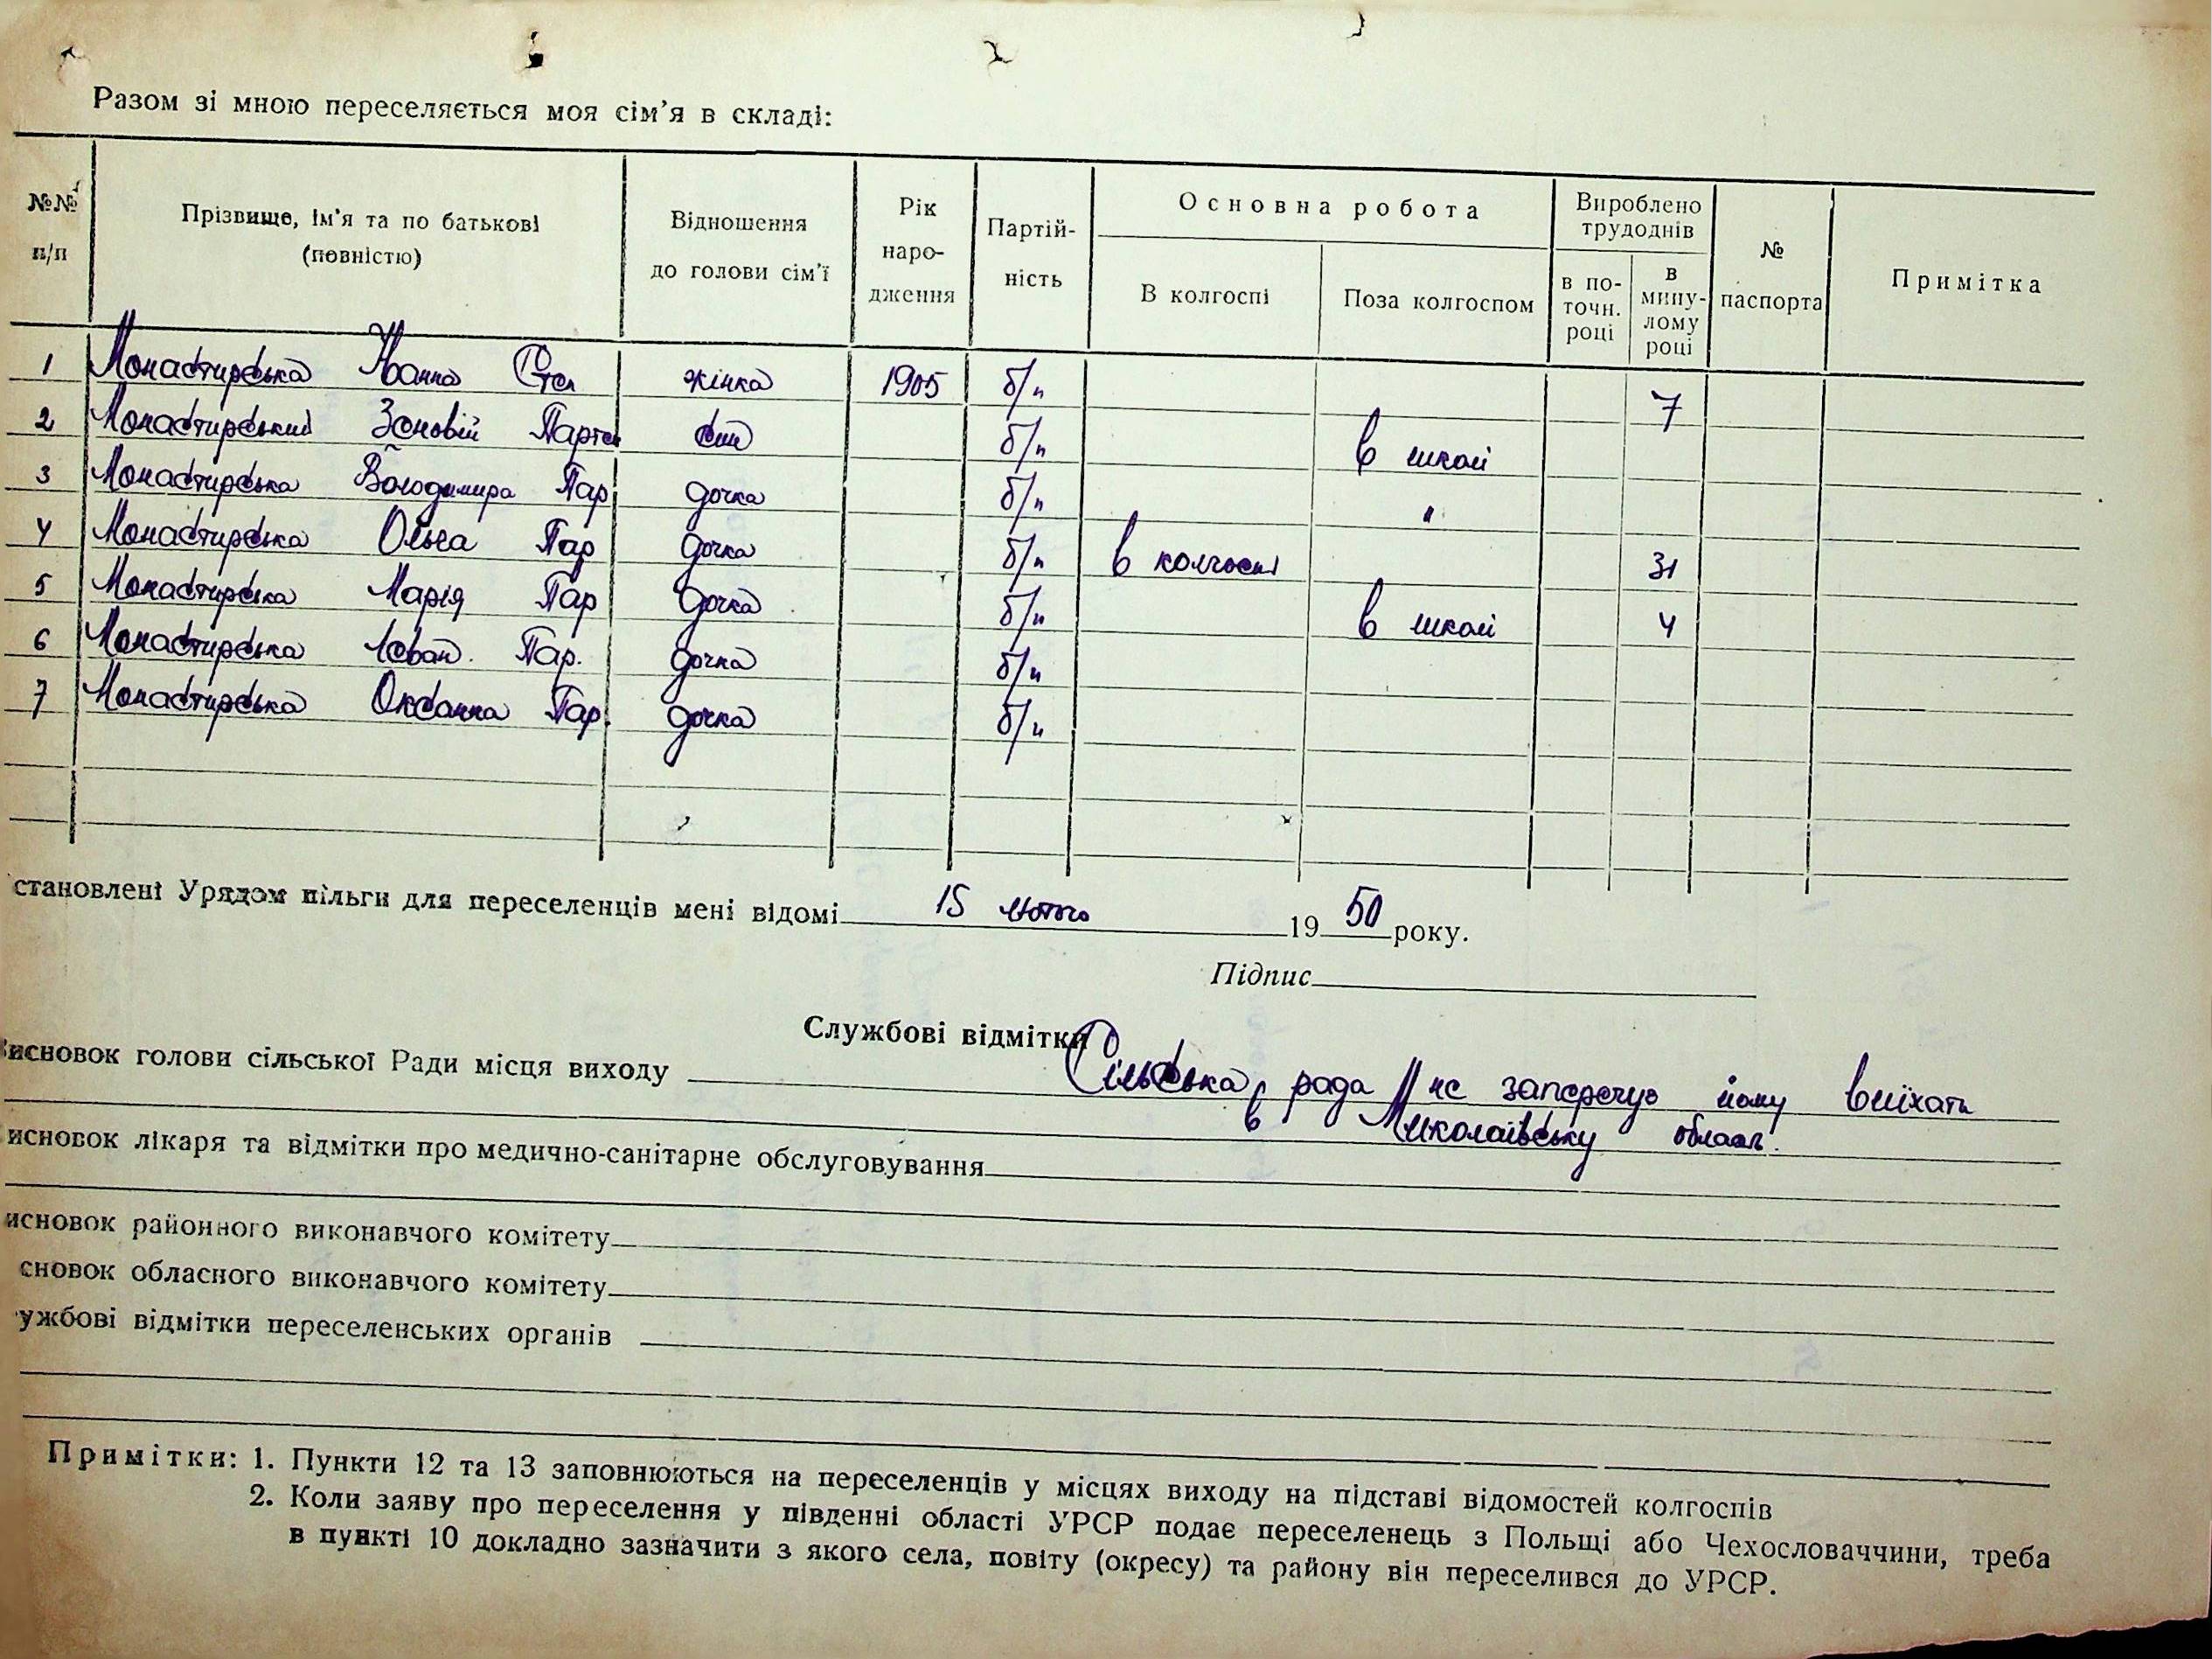 Разом зі мною переселяється моя сім'я в складі:
№№ п/п | Прізвище, ім'я та по батькові (повністю) | Відношення до голови сім'ї | Рік народження | Партійність | Основна робота | Вироблено трудоднів | № паспорта | Примітка
В колгоспі | Поза колгоспом | в поточн. році | в минулому році
1 Монастирська Іванна Степ жінка 1905 б/п 7
2 Монастирський Зеновій Парте син б/п в школі
3 Монастирська Володимира Пар дочка б/п "
4 Монастирська Ольга Пар дочка б/п в колгоспі 31
5 Монастирська Марія Пар дочка б/п в школі 4
6 Монастирська Пар. дочка б/п
7 Монастирська Оксанна Пар. дочка б/п
становлені Урядом пільги для переселенців мені відомі 15 лютого 19 50 року.
Підпис
Службові відмітки
исновок голови сільської Ради місця виходу Сільська рада не заперечує йому виїхати
в Миколаївську област.
исновок лікаря та відмітки про медично-санітарне обслуговування
исновок районного виконавчого комітету
сновок обласного виконавчого комітету
ужбові відмітки переселенських органів
Примітки: 1. Пункти 12 та 13 заповнюються на переселенців у місцях виходу на підставі відомостей колгоспів
2. Коли заяву про переселення у південні області УРСР подає переселенець з Польщі або Чехословаччини, треба
в пункті 10 докладно зазначити з якого села, повіту (окресу) та району він переселився до УРСР.